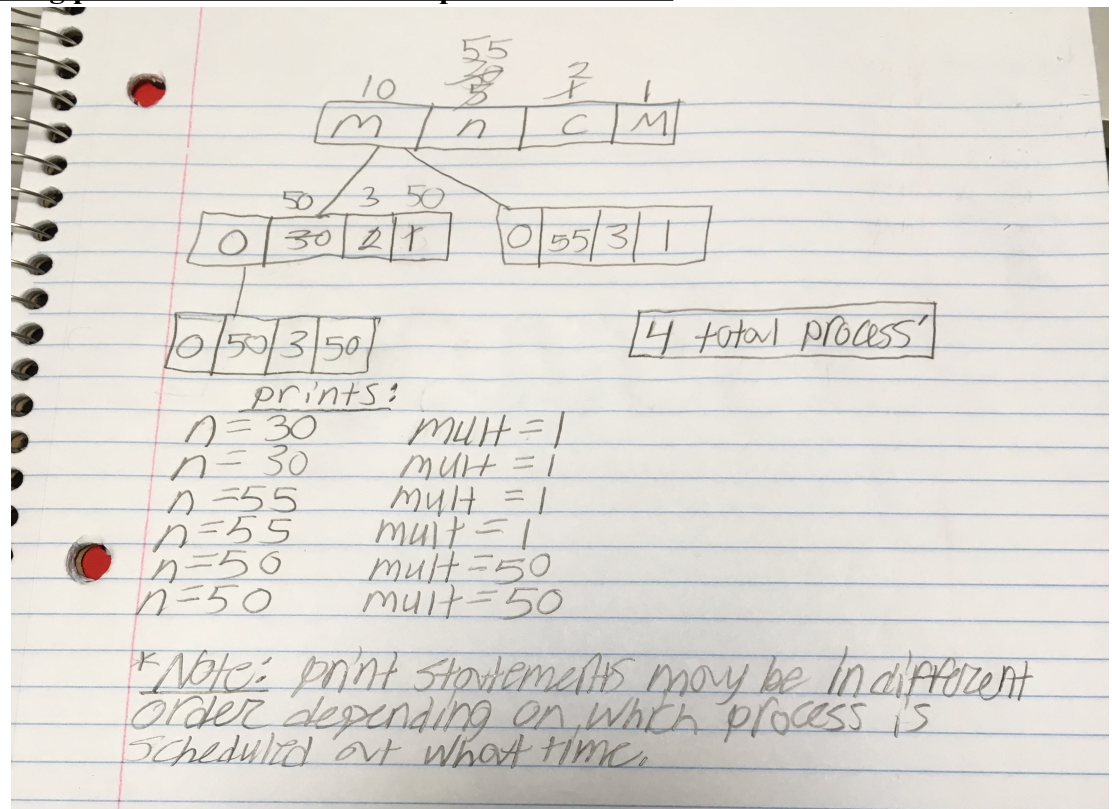 55
30
5
2
1
10
1
m n c M
50 3 50
0 30 2 1
0 55 3 1
0 50 3 50
4 total process'
prints:
n = 30 mult = 1
n = 30 mult = 1
n = 55 mult = 1
n = 55 mult = 1
n = 50 mult = 50
n = 50 mult = 50
* Note: print statements may be in different
order depending on which process is
scheduled at what time.